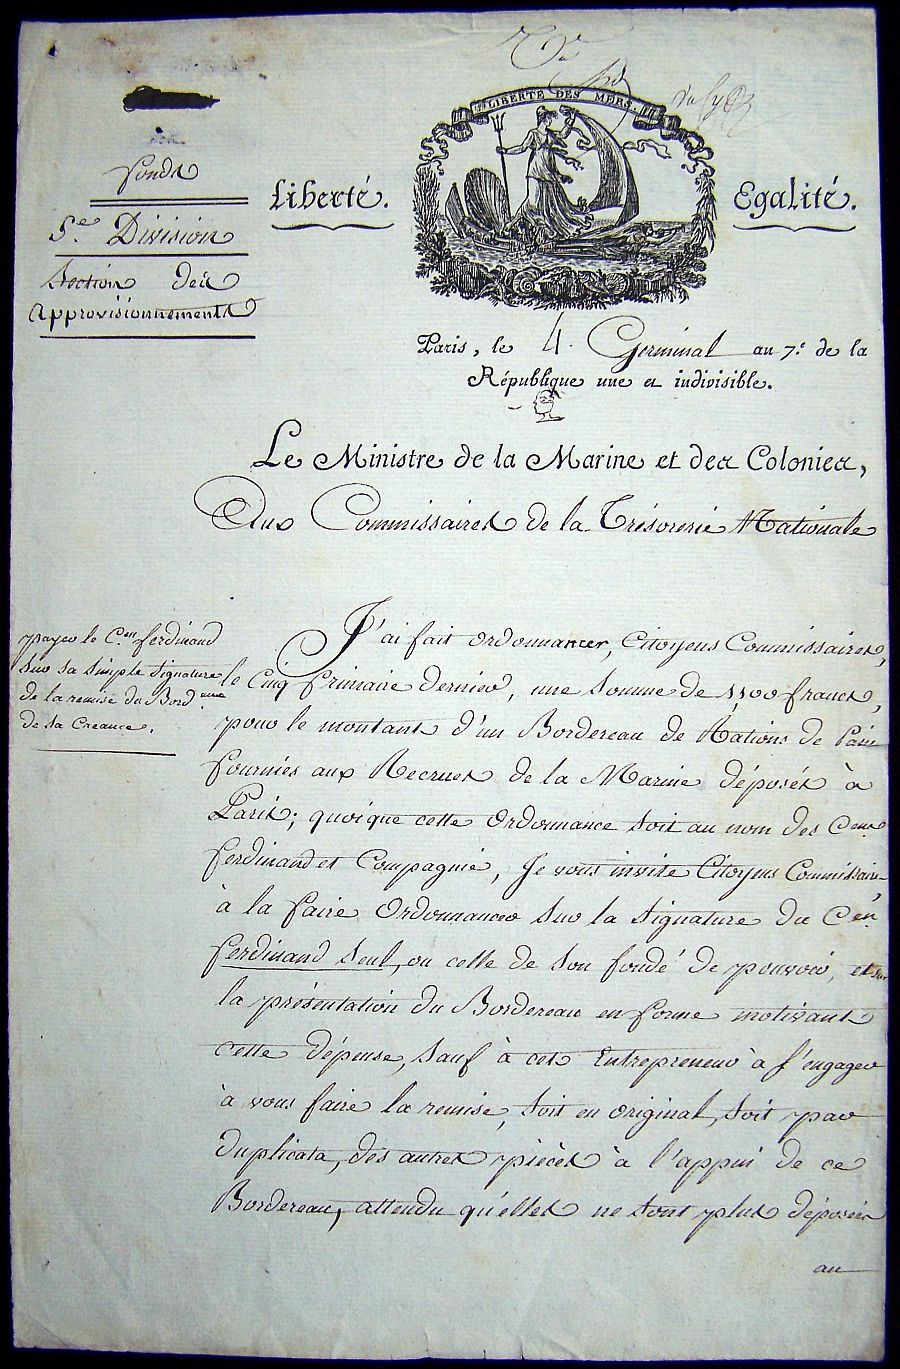 Fonds
5.e Division
Section des
Approvisionnements
LIBERTÉ DES MERS.
Liberté.
Egalité.
Paris, le 4. Germinal an 7.e de la
République une et indivisible.
Le Ministre de la Marine et des Colonies,
Aux Commissaires de la Trésorerie Nationale
payer le C.en ferdinand
Sur sa simple signature
de la remise du Bord
de sa Creance.
J'ai fait ordonnancer, Citoyens Commissaires,
le Cinq frimaire dernier, une Somme de 1500 francs,
pour le montant d'un Bordereau de Rations de Pain
fournies aux Recrues de la Marine déposés à
Paris; quoique cette Ordonnance soit au nom des C.ens
ferdinand et Compagnie, Je vous invite Citoyens Commissaires,
à la faire Ordonnancer Sur la Signature du C.en
ferdinand Seul, ou celle de Son fondé de pouvoir, et sur
la présentation du Bordereau en forme motivant
cette dépense, Sauf à cet Entrepreneur à s'engager
à vous faire la remise, Soit en original, Soit par
duplicata, des autres pièces à l'appui de ce
Bordereau, attendu qu'elles ne sont plus déposées
au